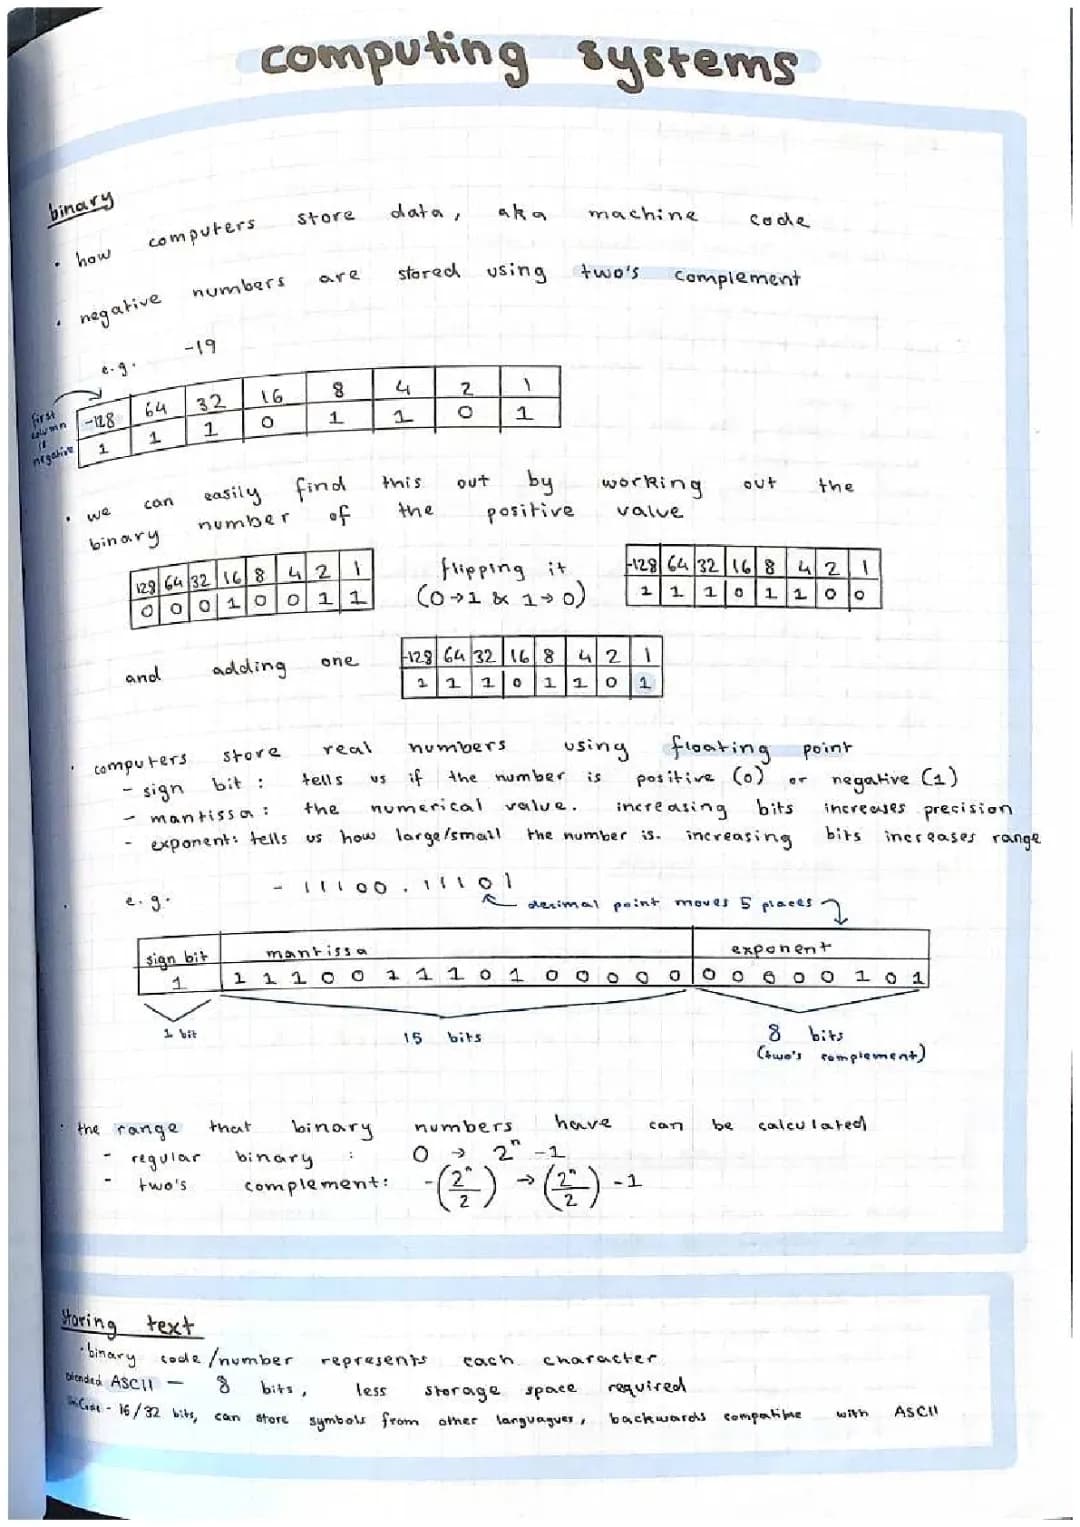 computing systems
binary
• how computers store data, aka machine code
• negative numbers are stored using two's complement
e.g. -19
first column is negative
-128 64 32 16 8 4 2 1
1 1 1 0 1 1 0 1
• we can easily find this out by working out the
binary number of the positive value
128 64 32 16 8 4 2 1
0 0 0 1 0 0 1 1
flipping it
(0→1 & 1→0)
-128 64 32 16 8 4 2 1
1 1 1 0 1 1 0 0
and adding one
-128 64 32 16 8 4 2 1
1 1 1 0 1 1 0 1
• computers store real numbers using floating point
- sign bit : tells us if the number is positive (0) or negative (1)
- mantissa : the numerical value. increasing bits increases precision
- exponent: tells us how large/small the number is. increasing bits increases range
e.g. - 11100.11101
decimal point moves 5 places
sign bit mantissa exponent
1 1 1 1 0 0 1 1 1 0 1 0 0 0 0 0 0 0 0 0 0 1 0 1
1 bit 15 bits 8 bits
(two's complement)
• the range that binary numbers have can be calculated
- regular binary : 0 → 2ⁿ -1
- two's complement: -(2ⁿ/2) → (2ⁿ/2) -1
storing text
• binary code/number represents each character
ASCII - 8 bits, less storage space required
- 16/32 bits, can store symbols from other languagues, backwards compatible with ASCII